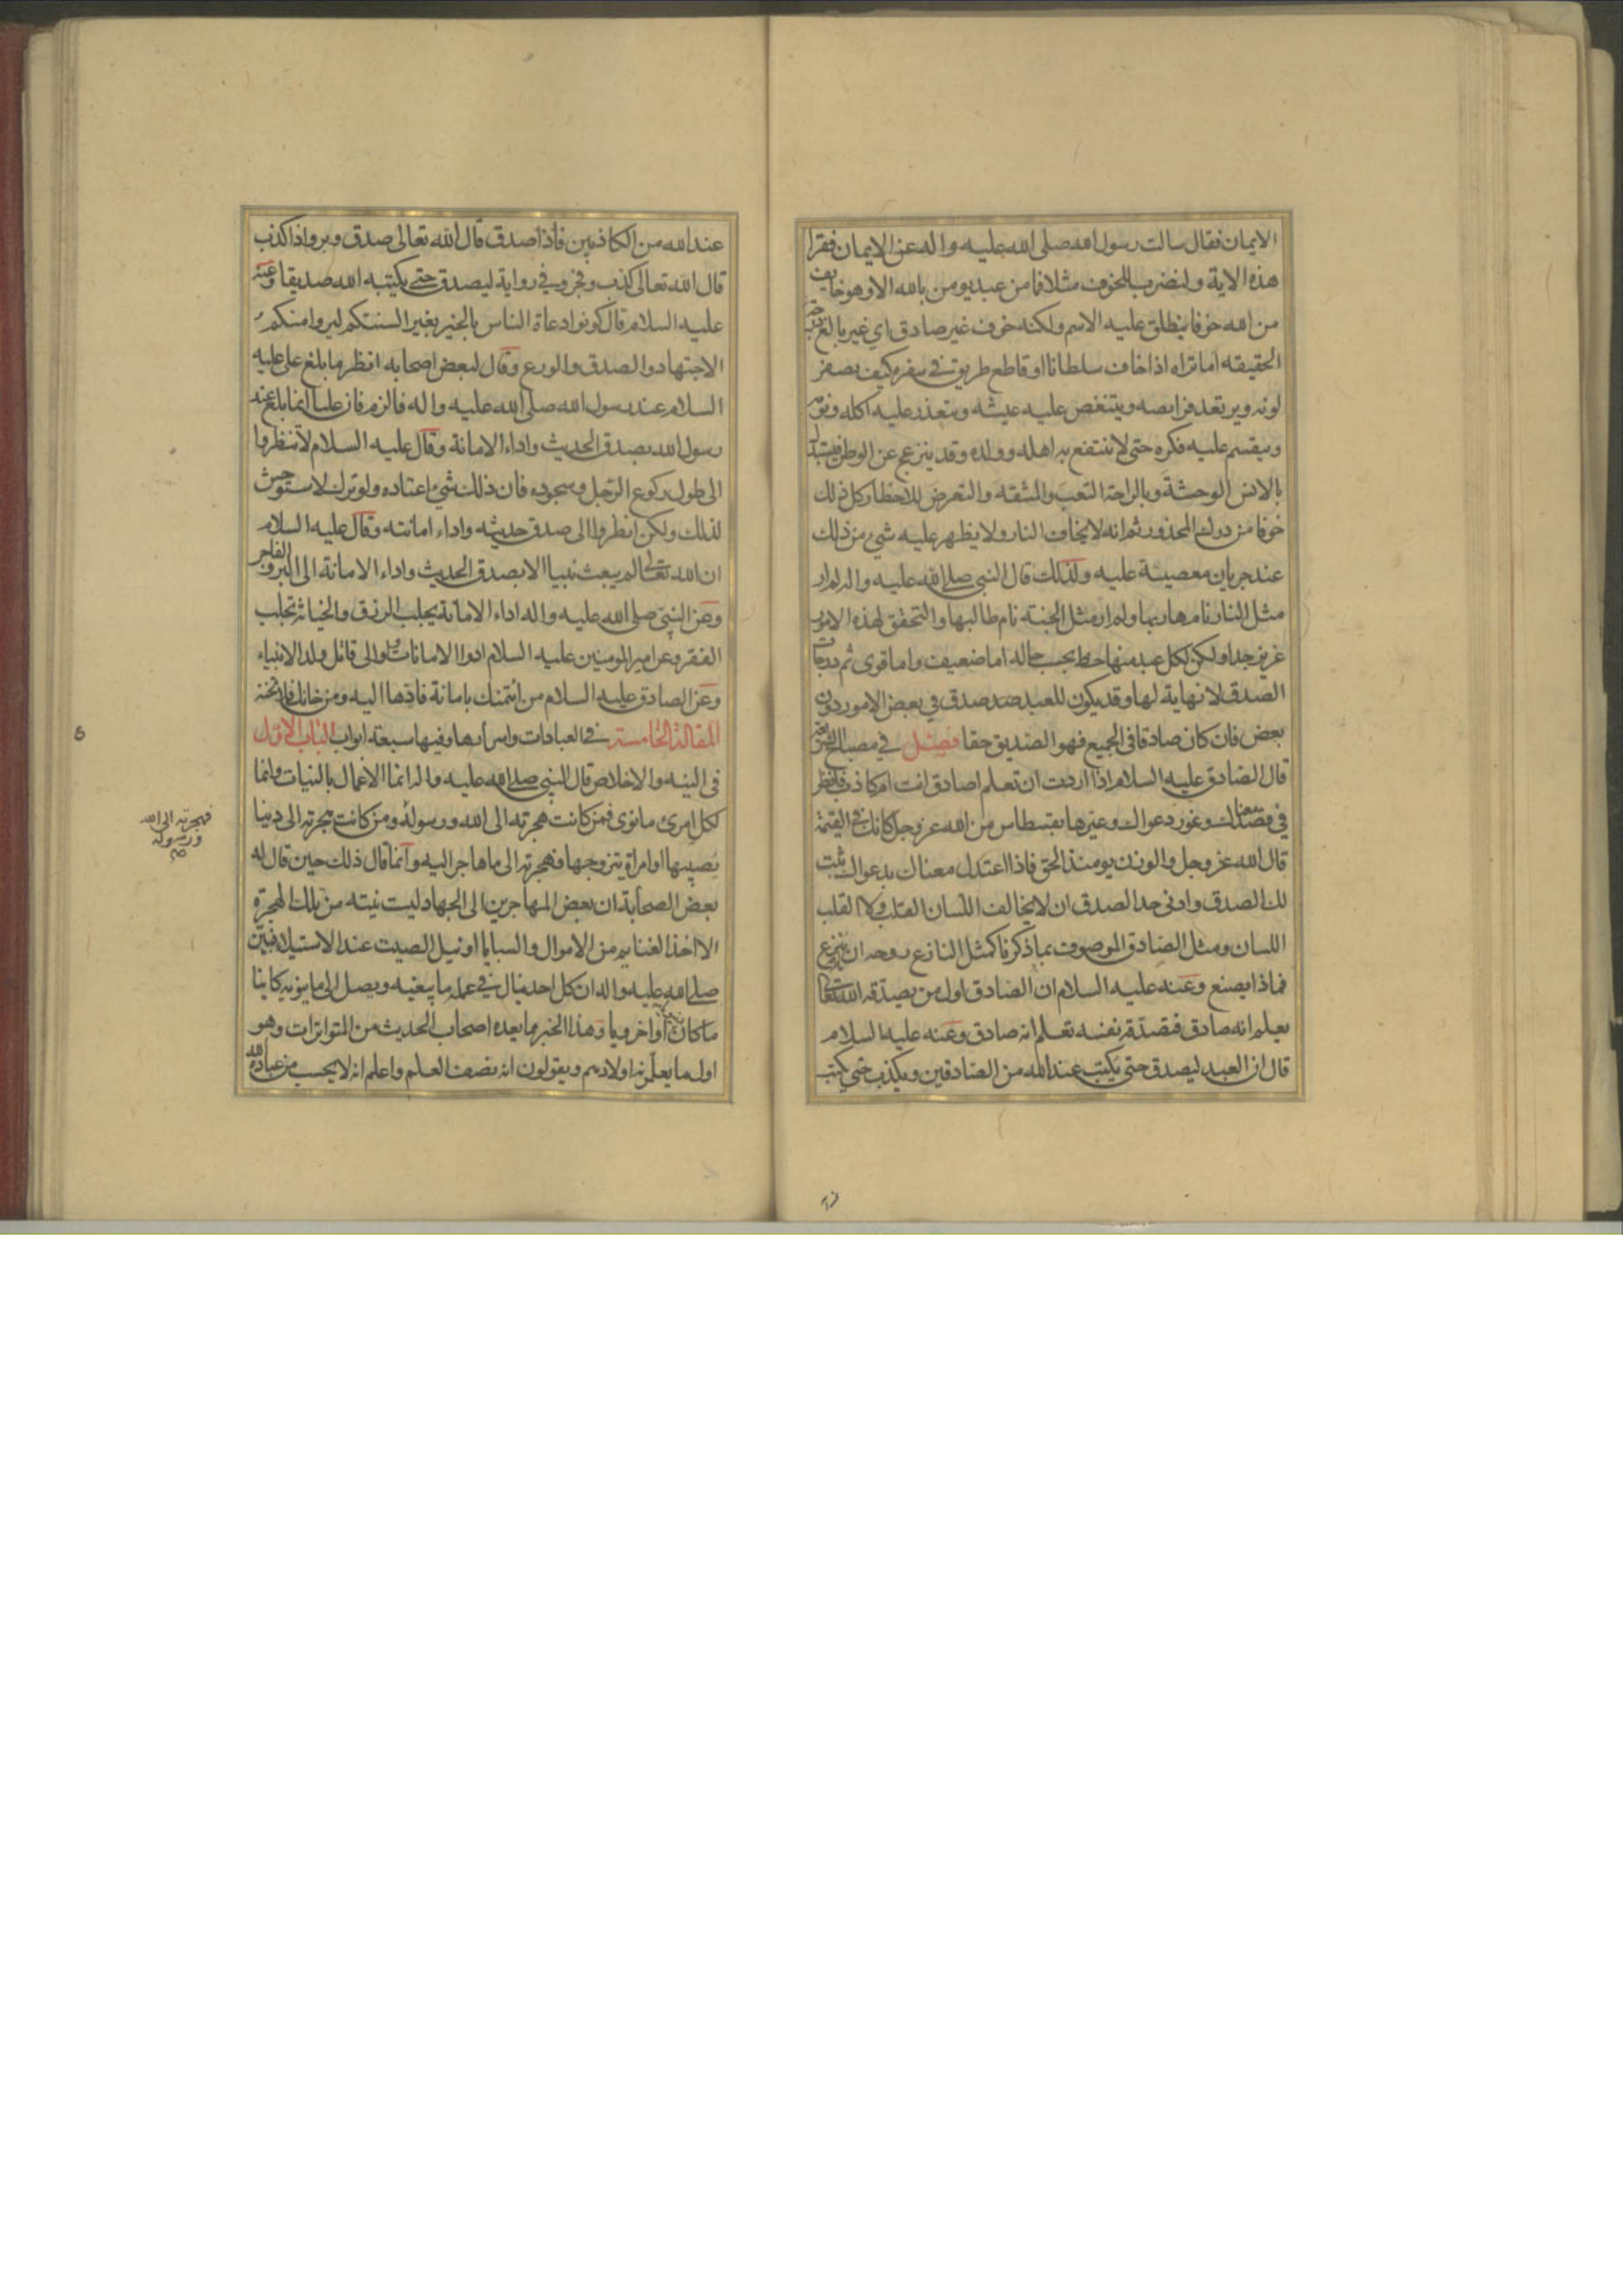 الايمان فقال سالت رسول الله صلى الله عليه واله عن الايمان فقرا
هذه الاية ولنضرب للخوف مثلا فما من عبد يومن بالله الا وهو خايف
من الله خوفا ينطلق عليه الاسم ولكنه خوف غير صادق اي غير بالغ درجة
الحقيقه اما تراه اذا خاف سلطانا او قاطع طريق في سفره كيف يصفر
لونه ويرتعد فرايصه ويتنغص عليه عيشه ويتعذر عليه اكله ونومه
وينقسم عليه فكره حتى لا ينتفع به اهله وولده وقد ينزعج عن الوطن فيستبدل
بالانس الوحشة وبالراحة التعب والمشقه والتعرض للاخطار كل ذلك
خوفا من درك المحذور ثم انه لا يخاف النار ولا يظهر عليه شيء من ذلك
عند جريان معصية عليه ولذلك قال النبي صلى الله عليه واله لم ار
مثل النار نام هاربها ولم ار مثل الجنة نام طالبها والتحقق لهذه الامور
عزيز جدا ولكن لكل عبد منها حظ بحسب حاله اما ضعيف واما قوى ثم درجات
الصدق لا نهاية لها وقد يكون للعبد صدق في بعض الامور دون
بعض فان كان صادقا في الجميع فهو الصديق حقا فصل في مصباح الشريعة
قال الصادق عليه السلام اذا اردت ان تعلم اصادق انت ام كاذب فانظر
في معناك وغور دعواك وعيرها بقسطاس من الله عز وجل كانك في القيمة
قال الله عز وجل والوزن يومئذ الحق فاذا اعتدل معناك بدعواك ثبت
لك الصدق وادنى حد الصدق ان لا يخالف اللسان القلب ولا القلب
اللسان ومثل الصادق الموصوف بما ذكرنا كمثل النازع روحه ان لم ينزع
فماذا يصنع وعنه عليه السلام ان الصادق اول من يصدقه الله تعالى
يعلم انه صادق فتصدقه نفسه تعلم انه صادق وعنه عليه السلام
قال ان العبد ليصدق حتى يكتب عند الله من الصادقين ويكذب حتى يكتب
عند الله من الكاذبين فاذا صدق قال الله تعالى صدق وبر واذا كذب
قال الله تعالى كذب وفجر وفي رواية ليصدق حتى يكتبه الله صديقا وعنه
عليه السلام قال كونوا دعاة الناس بالخير بغير السنتكم ليروا منكم
الاجتهاد والصدق والورع وقال لبعض اصحابه انظر ما بلغ على عليه
السلام عند رسول الله صلى الله عليه واله فالزمه فان عليا انما بلغ عند
رسول الله بصدق الحديث واداء الامانة وقال عليه السلام لا تنظروا
الى طول ركوع الرجل وسجوده فان ذلك شيء اعتاده ولو ترك لاستوحش
لذلك ولكن انظروا الى صدق حديثه واداء امانته وقال عليه السلام
ان الله تعالى لم يبعث نبيا الا بصدق الحديث واداء الامانة الى البر والفاجر
وعن النبي صلى الله عليه واله اداء الامانة يجلب الرزق والخيانة تجلب
الفقر وعن امير المومنين عليه السلام ادوا الامانات ولو الى قاتل ولد الانبياء
وعن الصادق عليه السلام من ائتمنك بامانة فادها اليه ومن خانك فلا تخنه
المقالة الخامسة في العبادات واسرارها وفيها سبعة ابواب الباب الاول
في النيه والاخلاص قال النبي صلى الله عليه واله انما الاعمال بالنيات وانما
لكل امرئ ما نوى فمن كانت هجرته الى الله ورسوله ومن كانت هجرته الى دينا
يصيبها او امراة يتزوجها فهجرته الى ما هاجر اليه وانما قال ذلك حين قال له
بعض الصحابة ان بعض المهاجرين الى الجهاد ليست نيته من تلك الهجرة
الا اخذ الغنايم من الاموال والسبايا او نيل الصيت عند الاستيلاء فبين
صلى الله عليه واله ان كل احد ينال في عمله ما يبغيه ويصل الى ما ينويه كاينا
ما كان او اخرويا وهذا الخبر مما يعده اصحاب الحديث من المتواترات وهو
اول ما يعلمونه اولادهم ويقولون انه نصف العلم واعلم انه لا يحسب من عبادة الله
فهجرته الى الله
ورسوله
صح